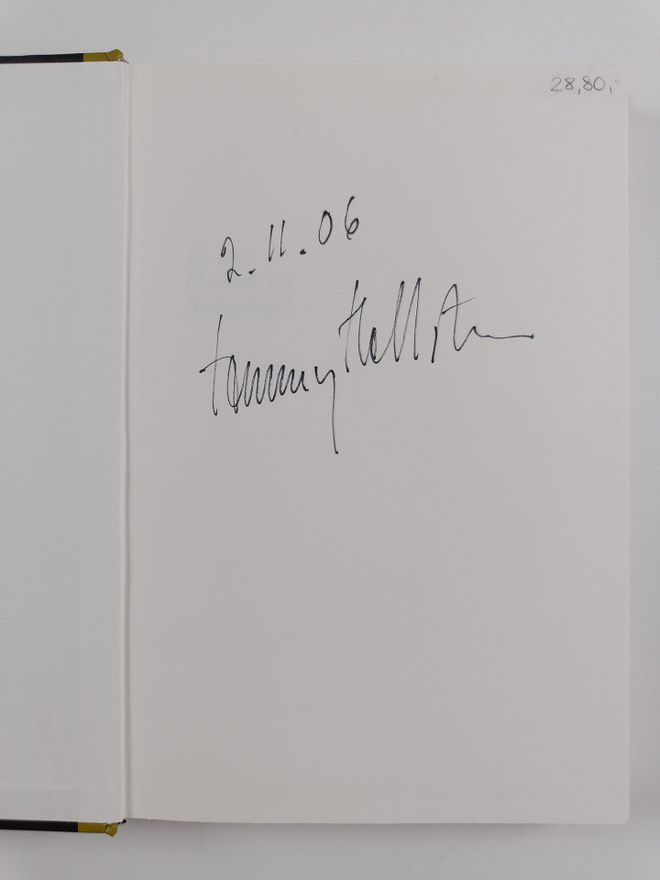 28,80,-
2.11.06
Tommy Hellsten